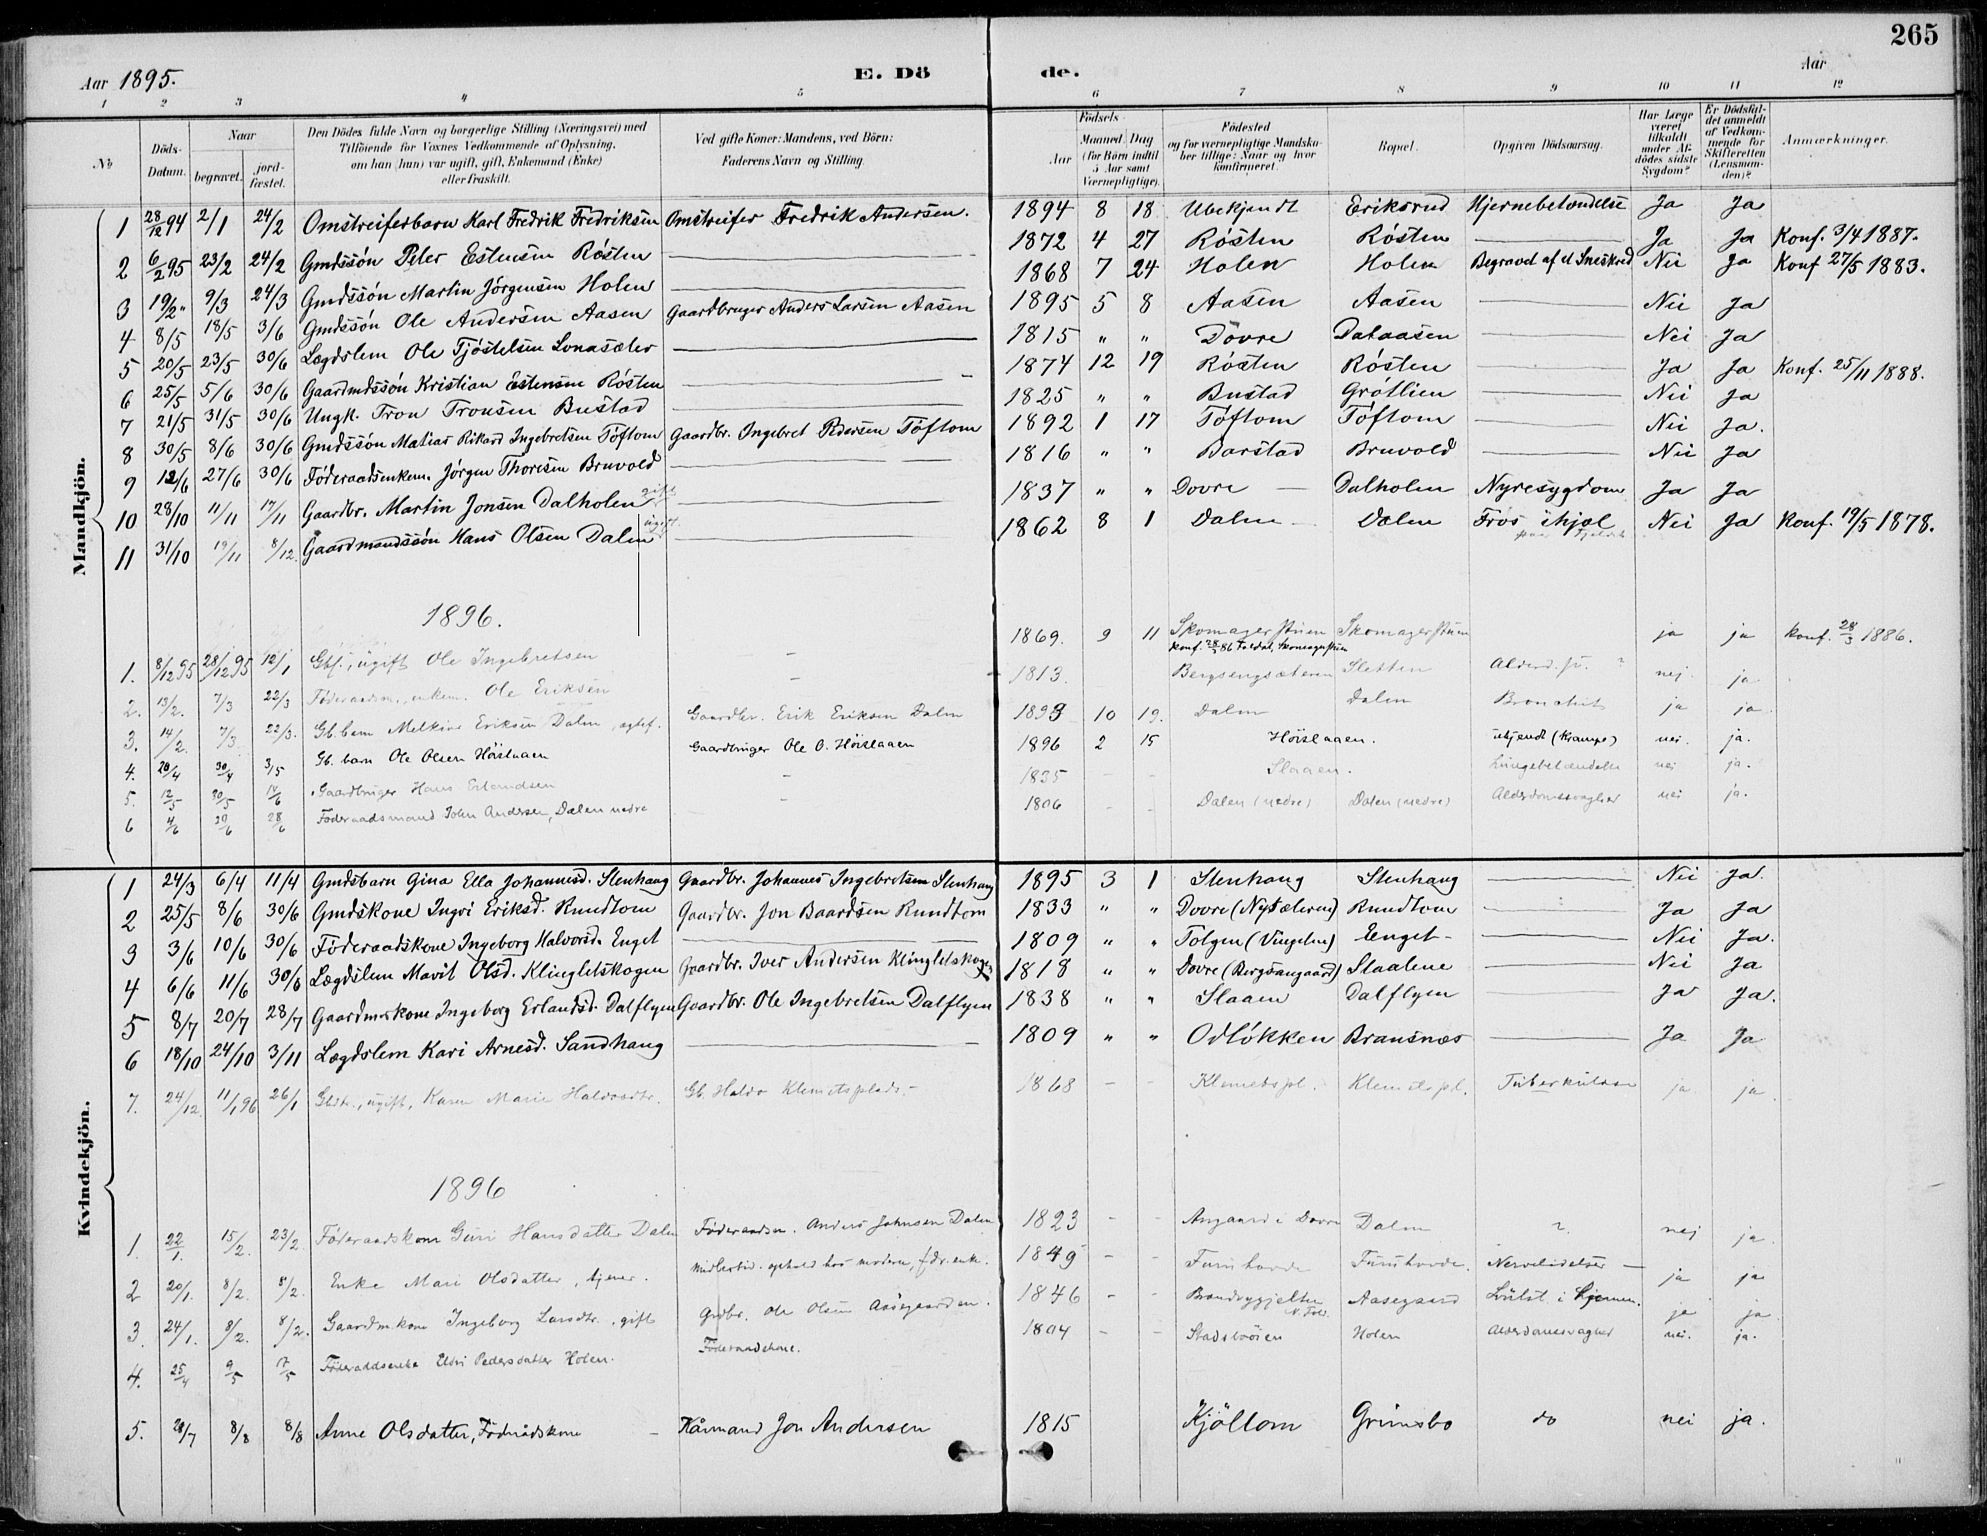 265
Aar 1895. E. Dö de. Aar
1 2 3 4 5 6 7 8 9 10 11 12
No
Döds-Datum.
Naar
begravet. jordfæstet.
Den Dödes fulde Navn og borgerlige Stilling (Næringsvei) med Tilföiende for Voxnes Vedkommende af Oplysning, om han (hun) var ugift, gift, Enkemand (Enke) eller fraskilt.
Ved gifte Koner: Mandens, ved Börn: Faderens Navn og Stilling.
Födsels
Aar Maaned Dag (for Börn indtil 5 Aar samt Værnepligtige).
Födested og for værnepligtige Mandskaber tillige: Naar og hvor konfirmeret.
Bopæl.
Opgiven Dödsaarsag.
Har Læge været tilkaldt under Afdödes sidste Sygdom?
Er Dödsfaldet anmeldt af Vedkommende for Skifteretten (Lensmanden)?
Anmærkninger.
Mandkjön.
1 28/12 94 2/1 24/2 Omstreiferbarn Karl Fredrik Fredriksen Omstreifer Fredrik Andersen. 1894 8 18 Ubekjendt Eriksrud Hjernebetændelse Ja Ja
2 6/2 95 23/2 24/2 Gmdssön Peter Estensen Røsten 1872 4 27 Røsten Røsten Ja Ja Konf. 3/4 1887.
3 19/2 " 9/3 24/3 Gmdssön Martin Jörgensen Holen 1868 7 24 Holen Holen Begravet af et Sneskred Nei Ja Konf 27/5 1883.
4 8/5 18/5 3/6 Gmdssön Ole Andersen Aasen Gaardbruger Anders Larsen Aasen 1895 5 8 Aasen Aasen Nei Ja
5 20/5 23/5 30/6 Lægdslem Ole Tjöstelsen Lonasæter 1815 " " Dovre Dalaasen Nei Ja
6 25/5 5/6 30/6 Gaardmdssøn Kristian Estensen Røsten 1874 12 19 Røsten Røsten Ja Ja Konf. 25/11 1888.
7 21/5 31/5 30/6 Ungk. Tron Tronsen Bustad 1825 " " Bustad Grötlien Nei Ja
8 30/5 8/6 30/6 Gmdssøn Matias Rikard Ingebretsen Töftom Gaardbr. Ingebret Pedersen Töftom 1892 1 17 Töftom Töftom Nei Ja.
9 12/6 27/6 30/6 Føderaadsenkem. Jörgen Thoresen Bruvold 1816 " " Barstad Bruvold Nei Ja
10 28/10 11/11 17/11 Gaardbr. Martin Jonsen Dalholen gift 1837 " " Dovre Dalholen Nyresygdom Ja Ja
11 31/10 19/11 8/12. Gaardmandssön Hans Olsen Dalen ugift. 1862 8 1 Dalen Dalen Frös ihjel Nei Ja Konf. 19/5 1878.
1896.
1. 8/12 95 28/12 95 12/1 Gbf., ugift Ole Ingebretsen - 1869. 9 11 Skomagerstuen Skomagerstuen ja ja konf. 28/3 1886.
konf. 28/3 86 Foldal, Skomagerstuen
2. 13/2. 7/3 22/3 Føderaadsm., enkem. Ole Eriksen - 1813. Bergsengsæteren Sletten nej. ja
3. 14/2. 7/3. 22/3. Gb. barn Melkior Eriksen Dalen, egtef. Gaardbr. Erik Eriksen Dalen 1893 10 19. Dalen Dalen Bronchit ja ja.
4. 20/4 30/4 3/5 Gb. barn Ole Olsen Höislaaen Gaardbruger Ole O. Höislaaen 1896 2 15 Höislaaen. ukjendt (Krampe) nei. ja.
5. 12/5 30/5 14/6 Gaardbruger Hans Erlandsen - 1835 - - Slaaen. Lungebetændelse nei ja.
6 4/6 20/6 28/6 Föderaadsmand John Andersen, Dalen nedre - 1806 - - Dalen (nedre) Dalen (nedre) Alderdomssvaghed nei ja.
Kvindekjön.
1 24/3 6/4 11/4 Gmdsbarn Gina Ella Johannesd. Stenhaug Gaardbr. Johannes Ingebretsen Stenhaug 1895 3 1 Stenhaug Stenhaug Nei Ja.
2 25/5 8/6 30/6 Gmdskone Ingri Eriksd. Rundtom Gaardbr. Jon Baardsen Rundtom 1833 " " Dovre (Nysæteren) Rundtom Ja Ja
3 3/6 10/6 30/6 Føderaadskone Ingeborg Halvorsd. Enget 1809 " " Tolgen (Vingelen) Enget Nei Ja.
4 6/6 11/6 30/6 Lægdslem Marit Olsd. Klingletskogen Gaardbr. Iver Andersen Klingletskogen 1818 " " Dovre (Bergsangaard) Slaalene Nei Ja
5 8/7 20/7 28/7 Gaardmkone Ingeborg Erlandsd. Dalflyen Gaardbr. Ole Ingebretsen Dalflyen 1838 " " Slaaen Dalflyen Ja Ja.
6 18/10 24/10 3/11 Lægdslem Kari Arnesd. Sandhaug 1809 " " Odløkken Bransnæs Ja Ja
7. 24/12. 11/1 96 26/1 ugift, Karen Marie Halvordtr. Gb. Haldo Klemetsplads. 1868 - - Klemetspl. Klemetspl. Tuberkulose ja ja.
1896
1. 22/1. 15/2. 23/2. Føderaadskone Guri Hansdatter Dalen Føderaadsm. Anders Johnsen Dalen 1823 - - Angaard i Dovre Dalen ? nej ja
2 20/1. 8/2. 8/2. Enke Mari Olsdatter, tjener. Midlertid. ophold hos moderen, fdr. enk. 1849 - - Furuhovde Furuhovde. Nervelidelser ja ja
3. 24/1. 8/2. 8/2. Gaardmkone Ingeborg Larsdtr., gift Grdbr. Ole Olsen Aasegaarden. 1846 - - Brandvggjelten Aasegaard Svulst i Hjernen. ja ja
4. 25/4 9/5 17/5 Föderaadsenke Eldri Pedersdatter Holen. Föderaadskone. 1804 - - Stadsbuöien Holen Alderdomssvaghed nei. ja.
5. 28/7 8/8 8/8 Anne Olsdatter, Föderådskone - Kårmand Jon Andersen 1815 Kjöllom Grimsbo do nei ja.